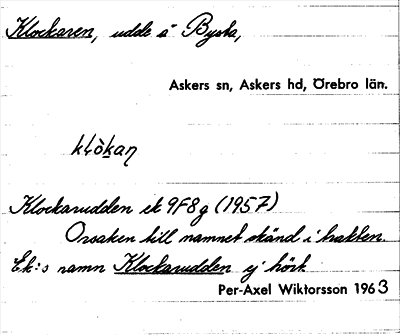 Klockaren, udde å Bysta,
Askers sn, Askers hd, Örebro län.
Klockarudden ek 9F8g (1957)
Orsaken till namnet okänd i trakten.
Ek:s namn Klockarudden ej hört.
Per-Axel Wiktorsson 1963